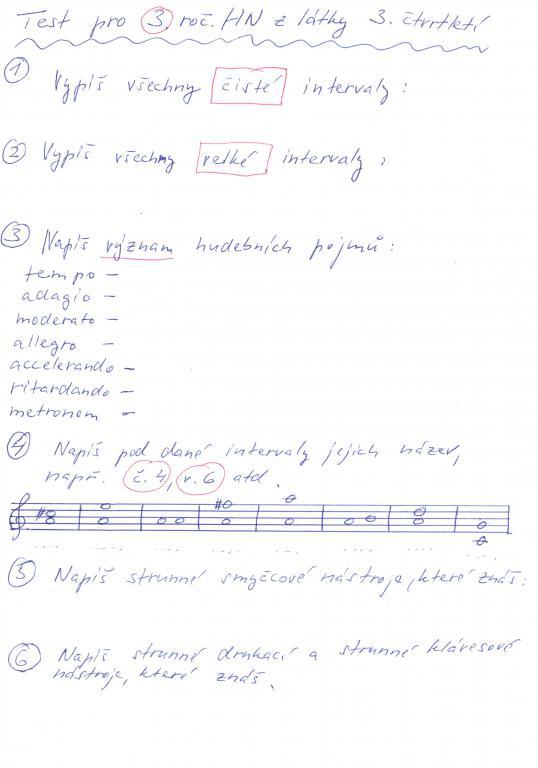 Test pro 3. roč. HN z látky 3. čtvrtletí
1 Vypiš všechny čisté intervaly:
2 Vypiš všechny velké intervaly:
3 Napiš význam hudebních pojmů:
tempo -
adagio -
moderato -
allegro -
accelerando -
ritardando -
metronom -
4 Napiš pod dané intervaly jejich název,
např. č.4, v.6 atd.
5 Napiš strunné smyčcové nástroje, které znáš:
6 Napiš strunné drnkací a strunné klávesové
nástroje, které znáš.